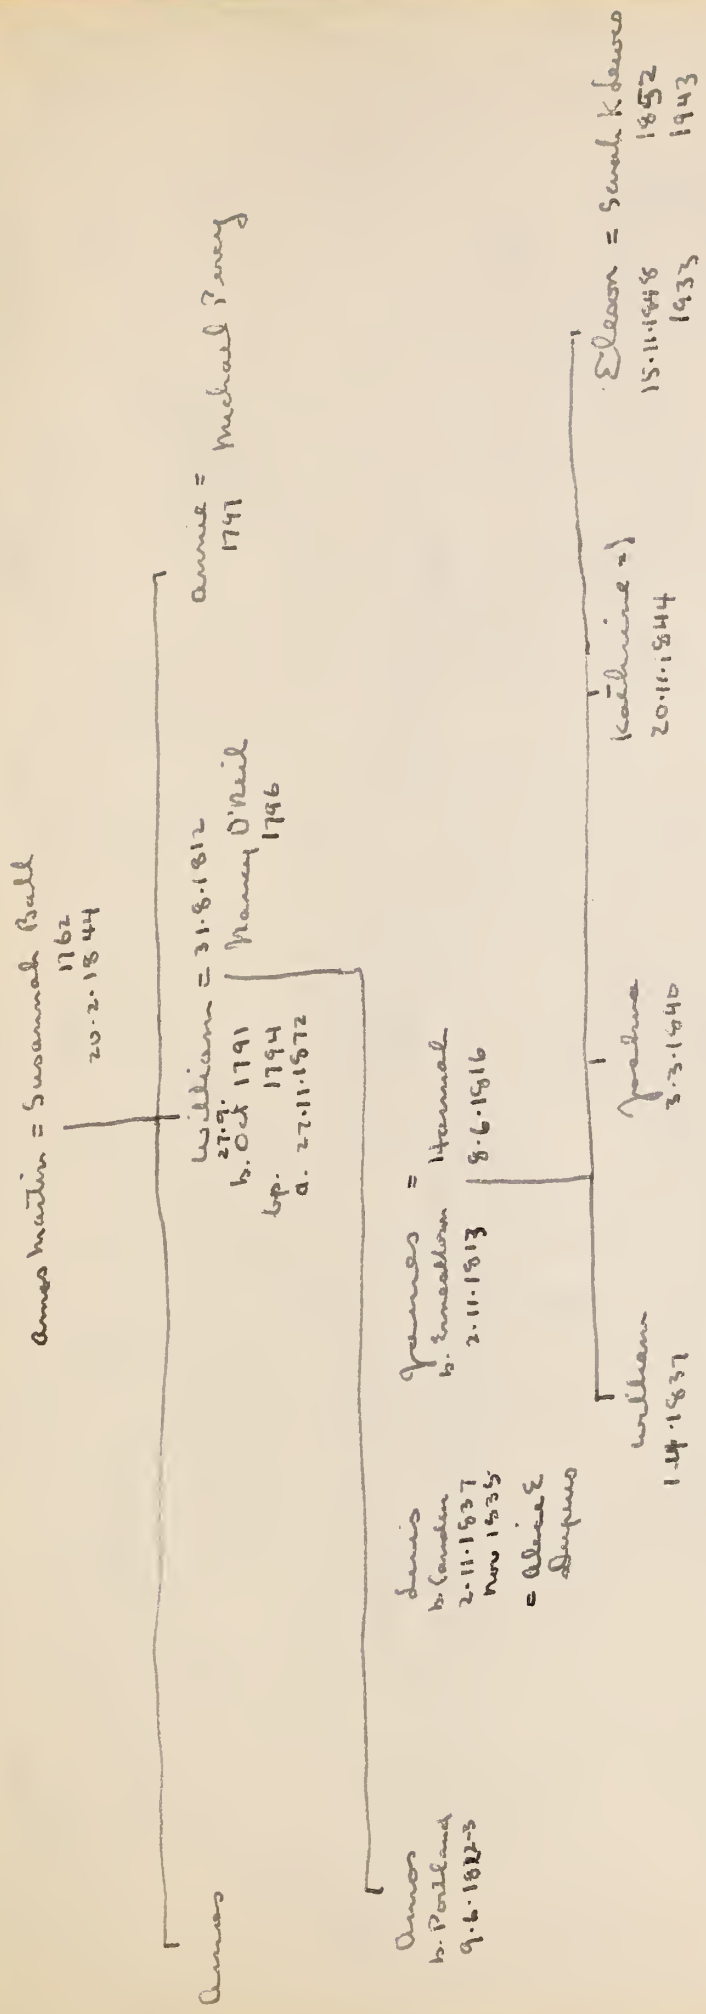 Amos Martin = Susannah Ball
1762
20.2.1844
Amos
William = 31.8.1812
27.9.
b. Oct 1791
bp. 1794
d. 27.11.1872
Nancy O'Neil
1796
Annie = Michael Percy
1797
Amos
b. Portland
9.6.1822-3
Lewis
b. Camden
2.11.1837
Nov 1835
= Alice E
James = Hannah
b. Ernestown 8.6.1816
2.11.1813
William
1.4.1837
Joshua
3.3.1840
Katherine = J
20.11.1844
= Sarah K Lewis
15.11.1848 1852
1933 1943